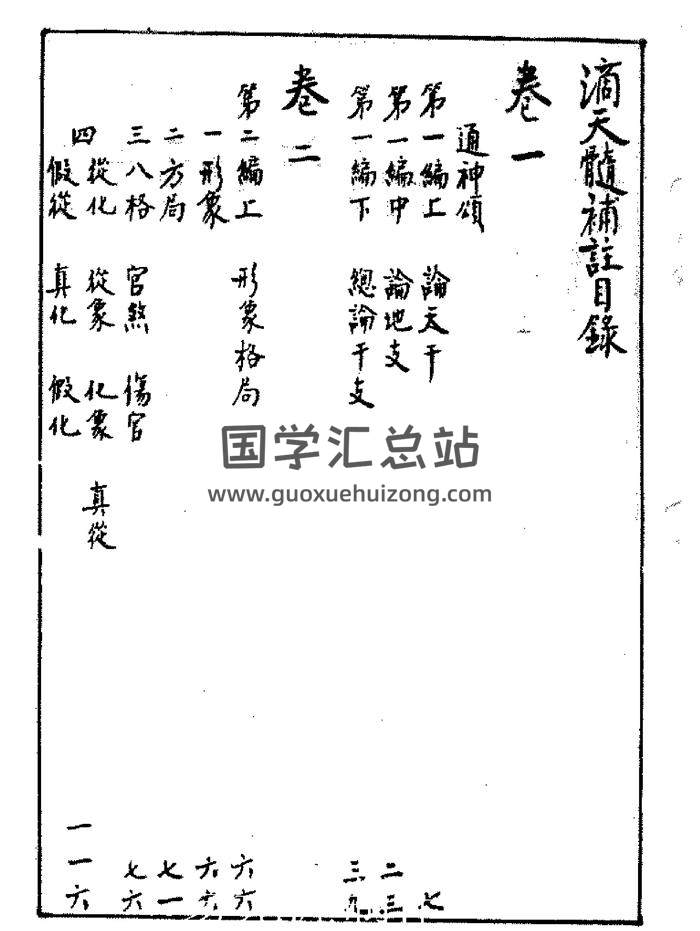 滴天髓補註目錄
卷一
通神頌
第一編上 論天干 七
第一編中 論地支 二三
第一編下 總論干支 三九
卷二
第二編上 形象格局 六六
一 形象 六六
二 方局 七一
三 八格 官煞 傷官 七六
四 從化 從象 化象 真從
假從 真化 假化 一一六
国学汇总站
www.guoxuehuizong.com